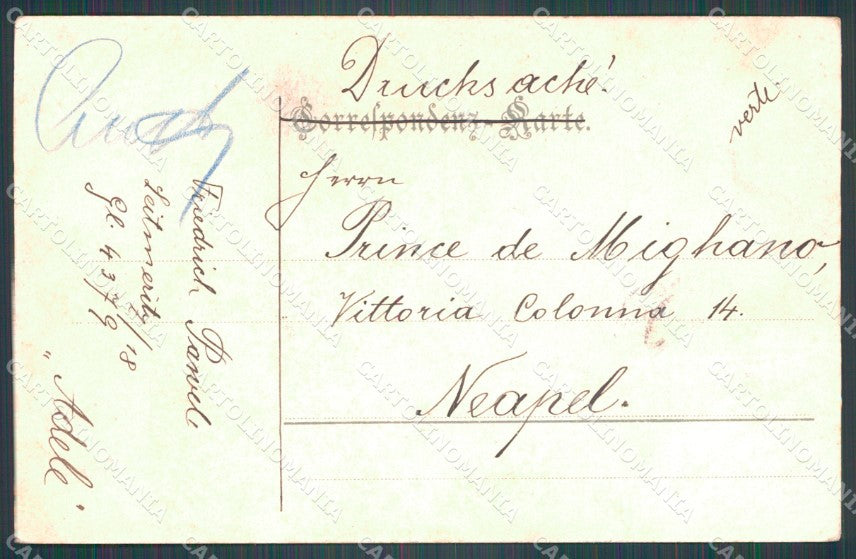 Drucksache!
Correspondenz-Karte.
verte
Herrn
Prince de Mighano,
Vittoria Colonna 14.
Neapel.
Friedrich Pawel
Leitmeritz
"Adele"
CARTOLINOMANIA